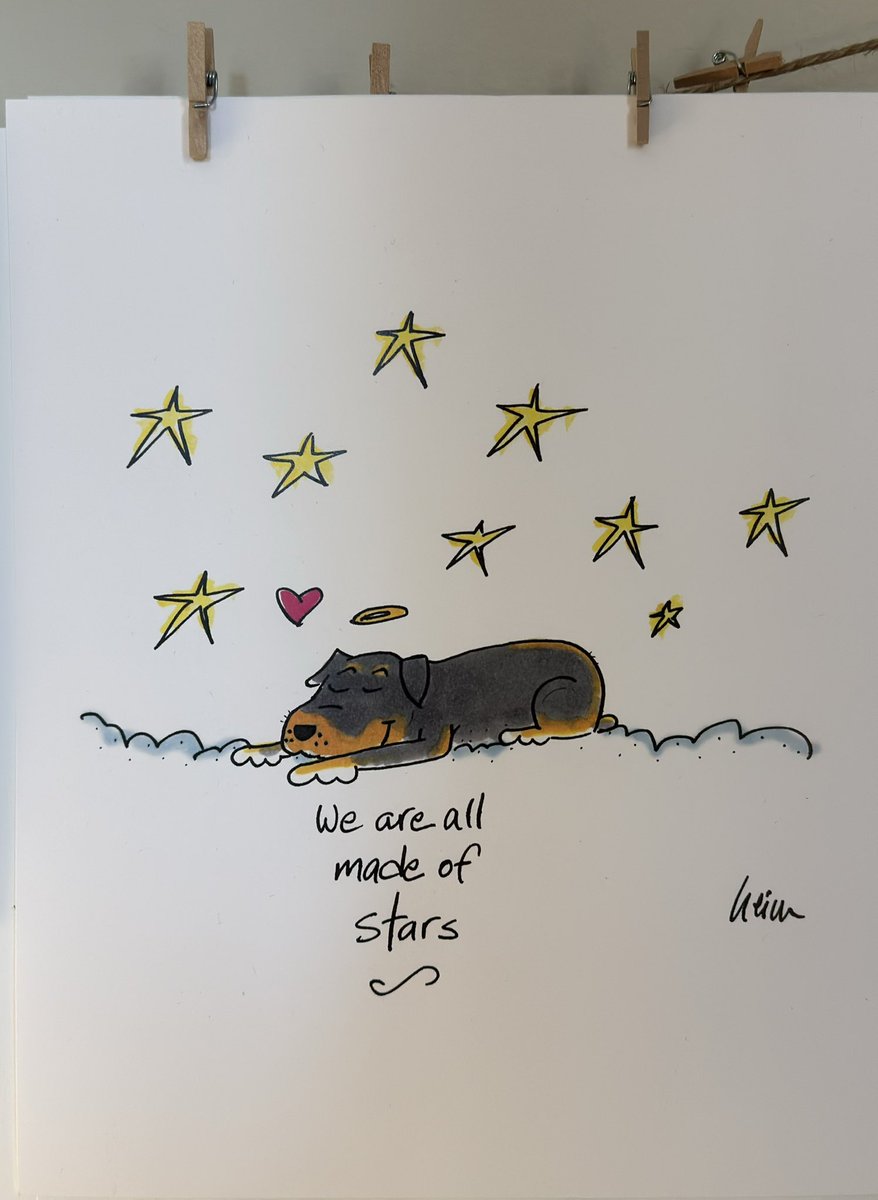 We are all
made of
stars